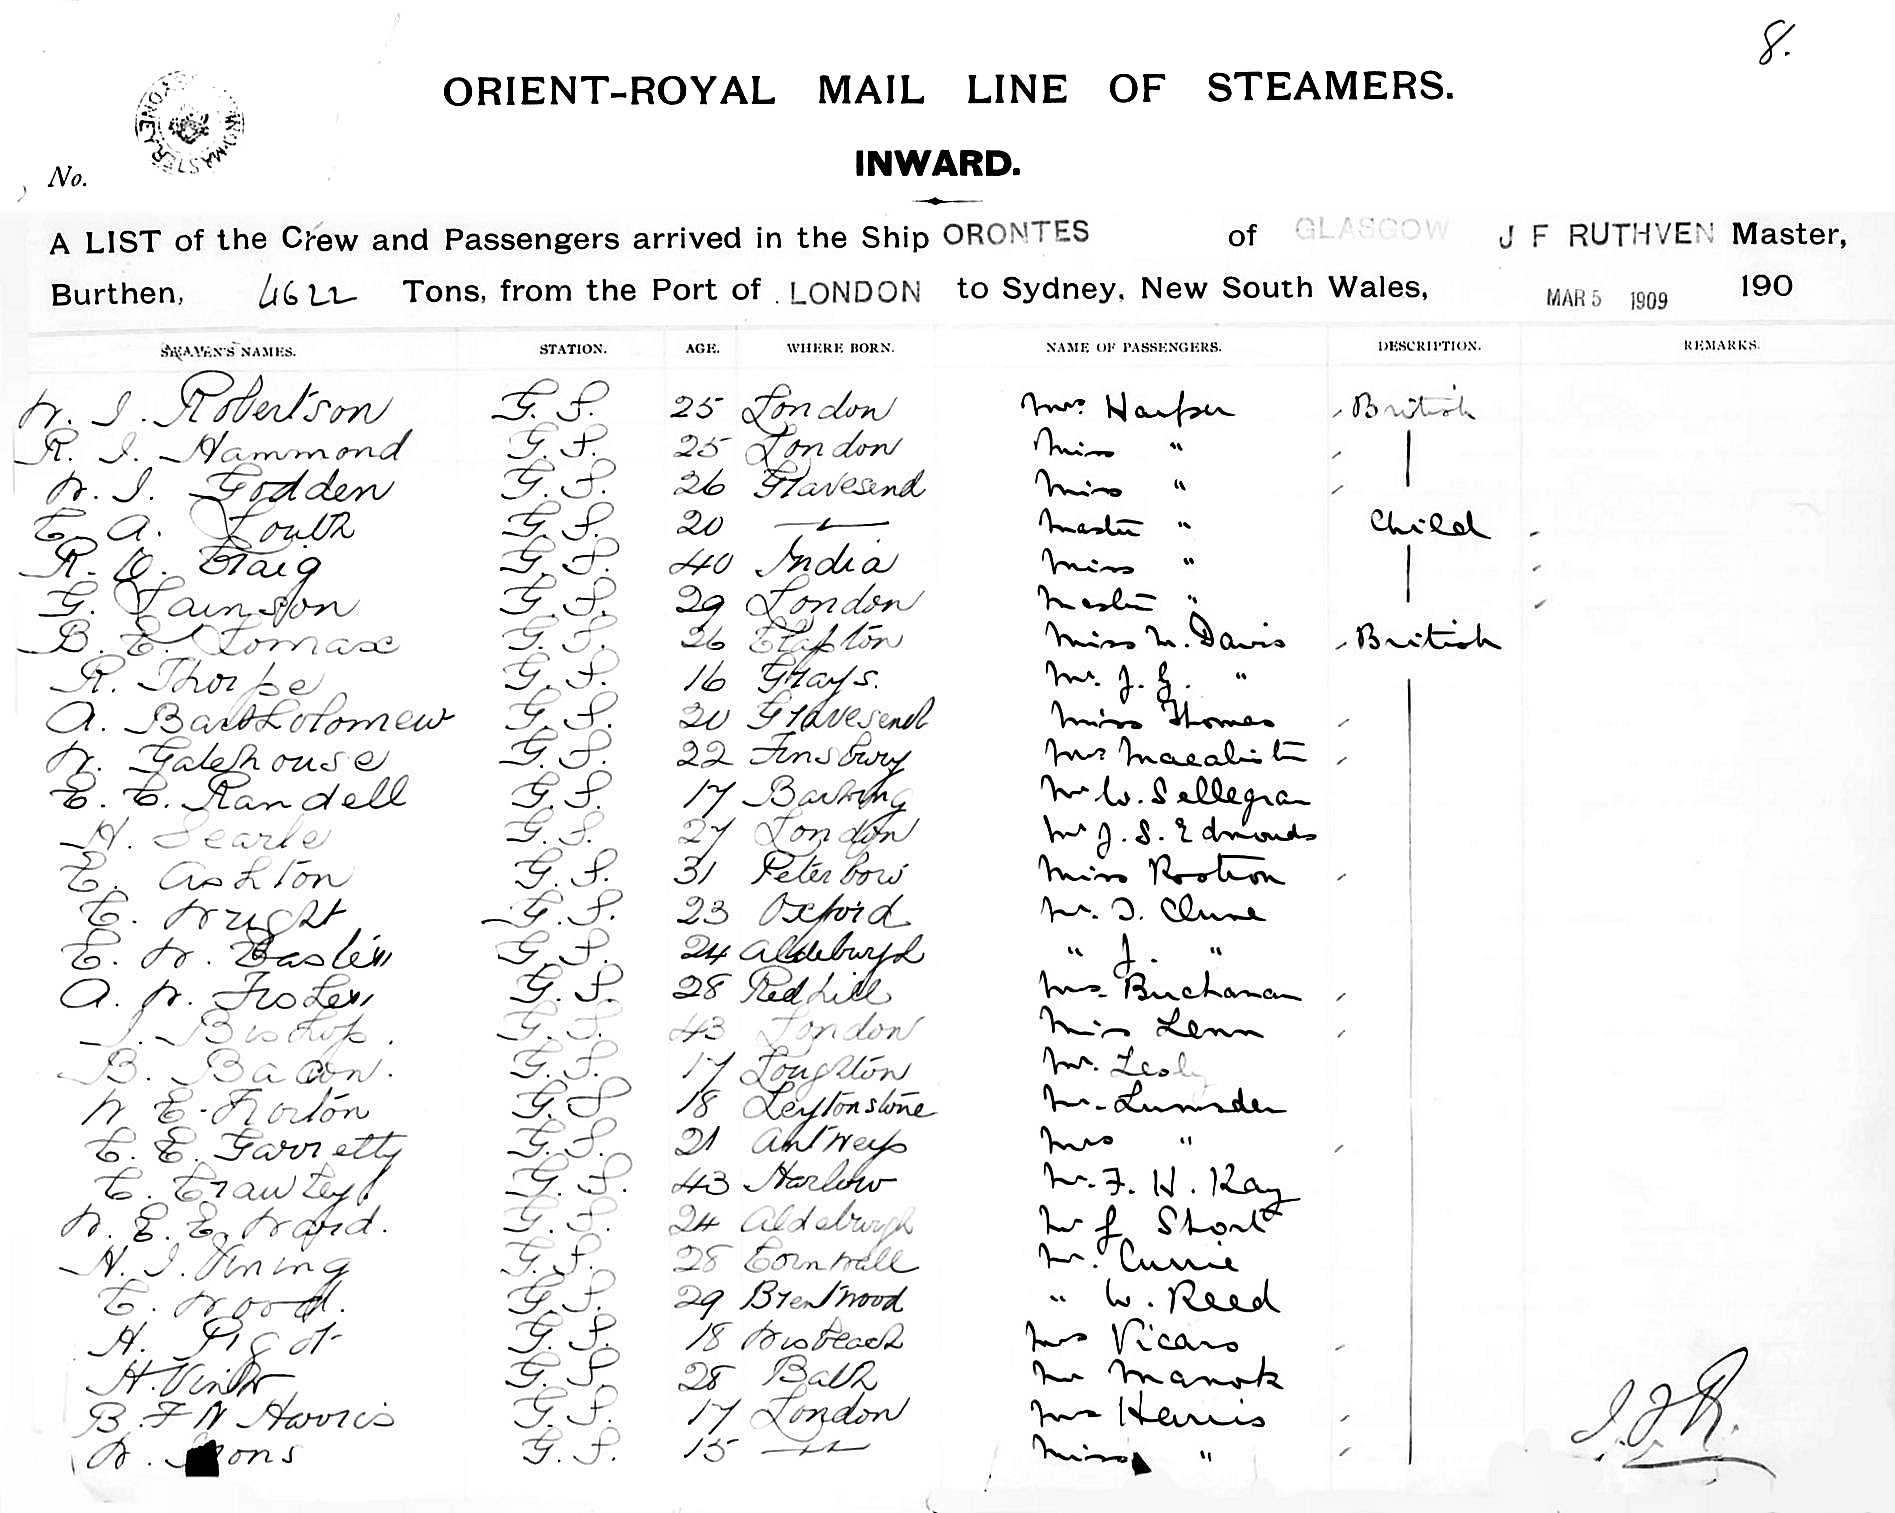 8.
ORIENT-ROYAL MAIL LINE OF STEAMERS.
INWARD.
No.
A LIST of the Crew and Passengers arrived in the Ship ORONTES of GLASGOW J F RUTHVEN Master,
Burthen, 4622 Tons, from the Port of LONDON to Sydney, New South Wales, MAR 5 1909 190
SEAMEN'S NAMES. STATION. AGE. WHERE BORN. NAME OF PASSENGERS. DESCRIPTION. REMARKS.
W. J. Robertson G. S. 25 London Mrs Harper British
R. J. Hammond G. S. 25 London Miss "
W. J. Godden G. S. 26 Gravesend Miss "
C. A. South G. S. 20 — " — Master " Child
R. O. Craig G. S. 40 India Miss "
G. Sainson G. S. 29 London Master "
B. E. Lomax G. S. 26 Clapton Miss M. Davis British
R. Thorpe G. S. 16 Grays. Mr. J. G. "
A. Bartholomew G. S. 20 Gravesend Miss Thomas
W. Gatehouse G. S. 22 Finsbury Mrs Macalister
E. C. Randell G. S. 17 Barking Mr W. Sellegran
H. Searle G. S. 27 London Mr J. S. Edmonds
E. Ashton G. S. 31 Peterboro' Miss Rostron
C. Wright G. S. 23 Oxford Mr. D. Clune
E. W. Baslin G. S. 24 Aldeburgh " J. "
A. W. Foster G. S. 28 Redhill Mrs. Buchanan
J. Bishop. G. S. 43 London Miss Lenn
B. Bacon. G. S. 17 Loughton Mr. Lesly
W E. Norton G. S 18 Leytonstone Mr. Lumsden
C. E. Garrett G. S. 21 Antwerp Mrs "
C. Crawley G. S. 43 Harlow Mr. F. H. Kay
W. E. E. Ward. G. S. 24 Aldeburgh Mr J Short
H. J. Vining G. S. 28 Cornwall Mr. Currie
C. Wood. G. S. 29 Brentwood " W. Reed
H. Pigot G. S. 18 Wisbeach Mrs Vicars
H. Vinter G. S. 28 Bath Mr Manok
B. F W Harris G. S. 17 London Mrs Harris
W. G. S. 15 — " — Miss "
J. F. R.